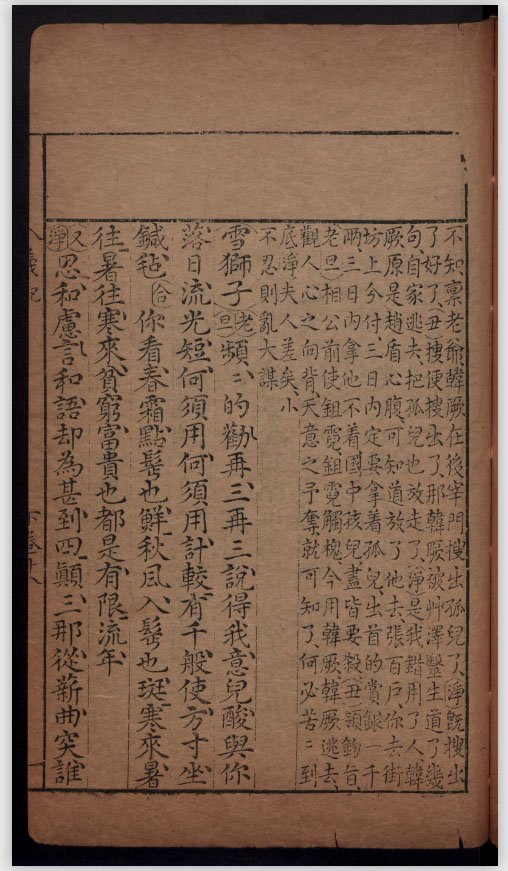 不知、稟老爺韓厥在後宰門搜出孤兒了、淨既搜出
了好了、丑搜便搜出了、那韓厥被艸澤醫生道了幾
句自家逃去、把孤兒也放走了、淨是我錯用了人、韓
厥原是趙盾心腹、可知道放了他去、張百户、你去街
坊上今付、三日內定要拿着孤兒、出首的賞銀一千
兩、三日內拿他不着、國中孩兒盡皆要殺、丑領鈞旨、
老旦相公前使鉏霓、鉏霓觸槐、今用韓厥、韓厥逃去、
觀人心之向背、天意之予奪、就可知了、何必苦〻到
底、淨夫人差矣、小
不忍則亂大謀
雪獅子老旦頻〻的勸、再三再三說得我意兒酸、與你
落日流光短、何須用何須用計較、有千般使方寸坐
鍼毡、合你看春霜點髩也鮮、秋風入髩也斑、寒來暑
往、暑往寒來、貧窮富貴也都是有限流年
又淨思和慮言和語、却為甚到四顛三、那從薪曲突誰
八義記
下卷十八